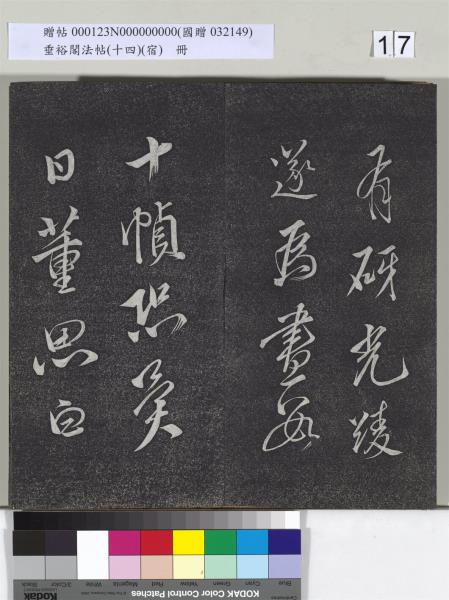 贈帖 000123N000000000(國贈 032149)
垂裕閣法帖(十四)(宿) 冊
17
有研光綾
遂為書
十幀
日董思白
Blue Cyan Green Yellow Red Magenta White 3/Color Black
Centimetres
KODAK Color Control Patches
Kodak